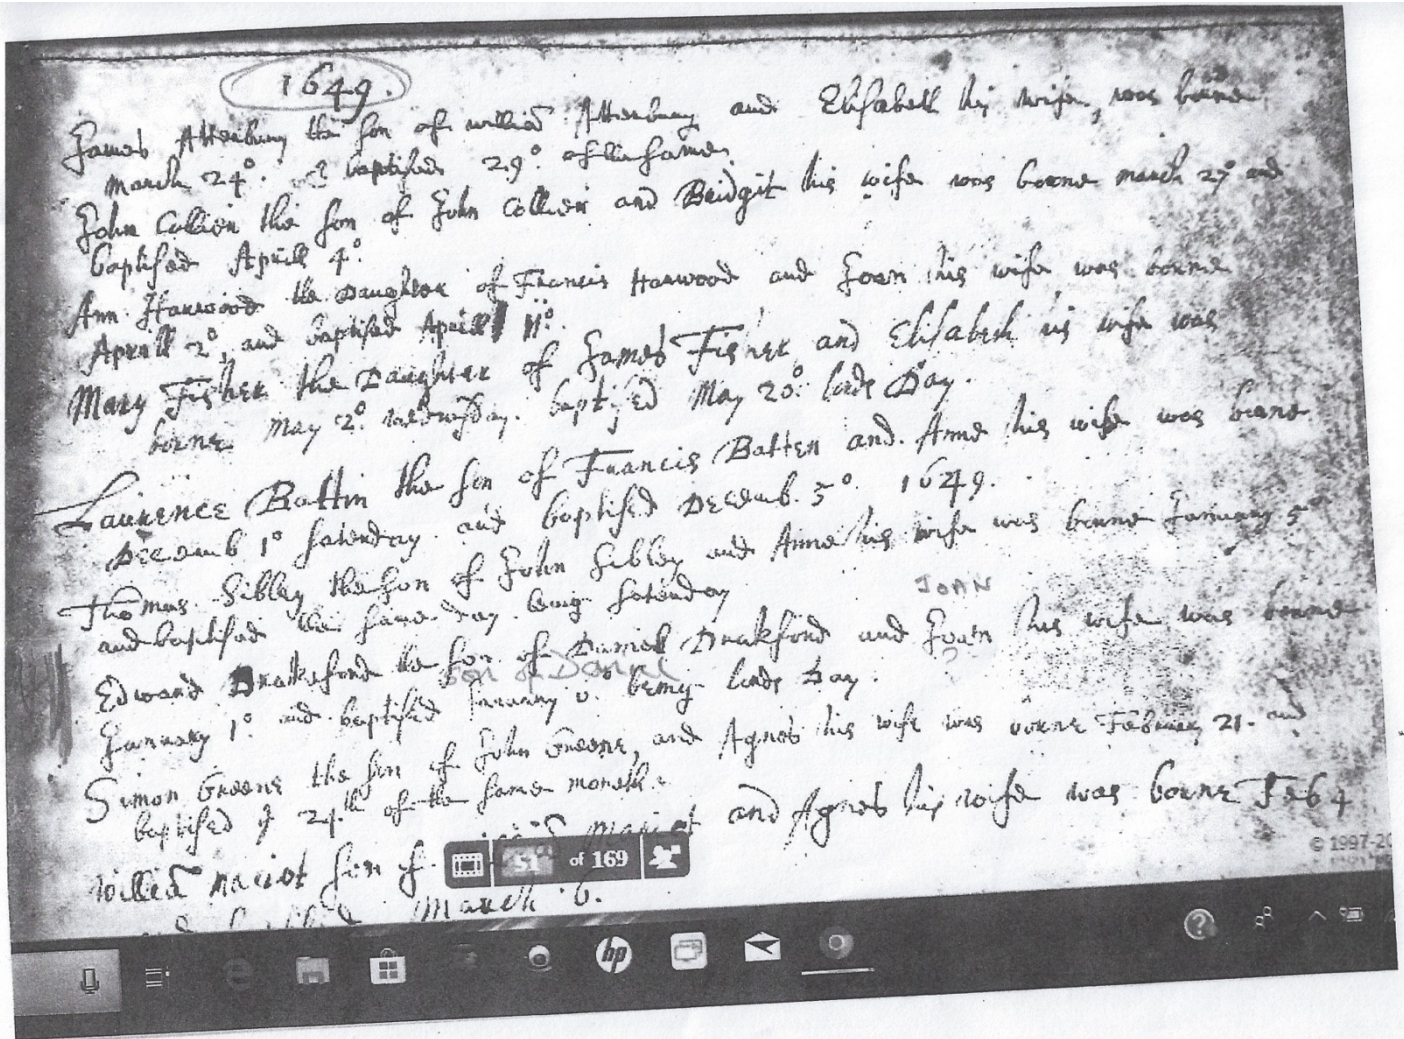 1649.
James Attenbury the son of William Attenbury and Elisabeth his wife, was borne
march 24° & baptised 29° of the same.
John Collier the son of John Collier and Bridgit his wife was borne march 27° and
baptised Aprill 4°
Ann Harwood the Daughter of Francis Harwood and Joan his wife was borne
Aprill 2°, and baptised Aprill 11°
Mary Fisher the Daughter of James Fisher and Elisabeth his wife was
borne May 2° wednesday. baptised May 20° lords Day.
Laurence Battin the son of Francis Batten and Anne his wife was borne
Decemb 1° saterday and baptised Decemb. 5° 1649.
Thomas Sibley the son of John Sibley and Anne his wife was borne January 5°
and baptised the same day being saterday
JOAN
Edward Drakeford the son of Daniell Drakford and Joan his wife was borne
son of Daniel
?
January 1° and baptised January being lords Day.
Simon Greene the son of John Greene, and Agnes his wife was borne February 21. and
baptised 24.th of the same moneth.
Willia mariot son of mariot and Agnes his wife was borne Feb 4
March 6.
51 of 169
© 1997-20
hp
?